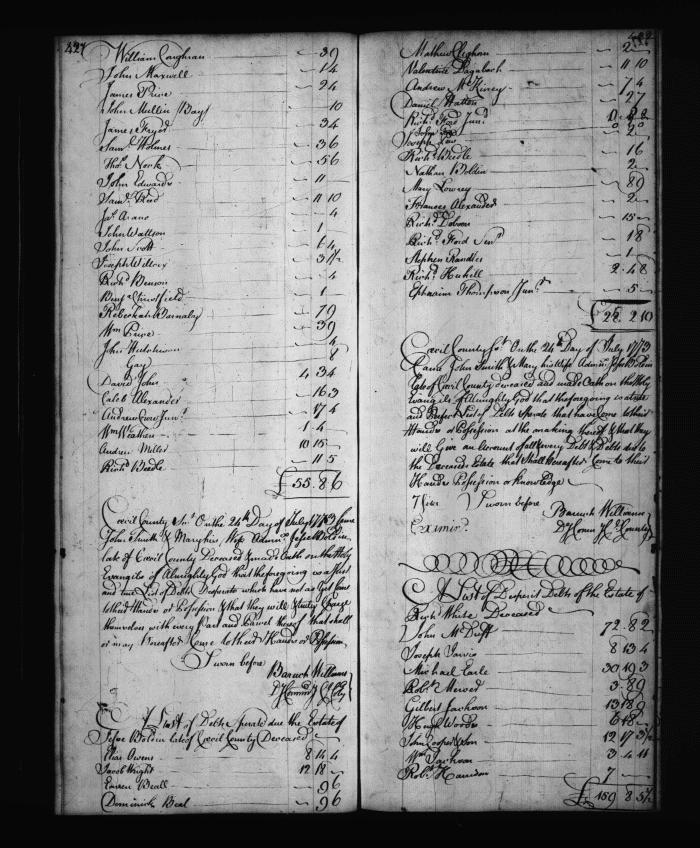 427
William Coughran — 3 9
John Maxwell — 1 4
James Price — 2 4
John Mullin Bay — 10
James Fryer — 3 4
Saml. Holmes — 3 6
Thos. Nork — 5 6
John Edwards — 11
Saml. — 11 10
Jas. — 4
John Wattson — 1
John Scott — 6 4
Joseph — 3
Richd. Benson — 4
Benja. — 1
Rebeckah Barnaby — 7 9
Wm Price — 3 9
John Hutchison — 4
Gay — 8
David John — 4 3 4
Caleb Alexander — 16 3
Andrew Junr. — 17 4
Wm — 1 4
Andrew Miller — 10 15
Richd. Beedle — 11 5
£ 55. 8. 6
Cecil County On the 24th Day of July 1773 Came
John Smith & Mary his Wife Admrs. of Jesse Boldin
late of Cecil County Deceased & made Oath on the Holy
Evangils of Almighty God that the foregoing is a Just
and true List of Debts Desperate which have not as yet Come
to their Hands or Possession & that they will Charge
themselves with every Part and Parcel thereof that shall
or may hereafter Come to their Hands or Possession
Sworn before
Baruch Williams
Dy Commy Cl Cty
A List of Debts due the Estate of
Jesse Boldin late of Cecil County Deceased
Elias Owens — 8 14 4
Jacob Wright — 12 18
Beall — 9 6
Dominick Beal — 9 6
Mathew — 2
Valentine — 11 10
Andrew McKiney — 7 4
Daniel Hatton — 1 7
Richd. Ford Junr.
Joseph
Richd. Beedle — 16
Nathan Boldin — 2
Mary Lowrey — 8 9
Frances Alexander — 2
Richd. Dobson — 15
Richd. Ford Senr. — 18
Stephen Randles — 1
Richd. Hukill — 2. 4 8
Ephraim Thompson Junr. — 5
£ 28. 2 10
Cecil County Sct. On the 24th Day of July 1773
Came John Smith & Mary his Wife Admrs. of Jesse Boldin
late of Cecil County deceased and made Oath on the Holy
Evangils of Almighty God that the foregoing is a true
and Perfect List of Debts Sperate that have Come to their
Hands or Possession at the making thereof & that they
will Give an Account of all & every Debt & Debts due to
the Deceased Estate that Shall hereafter Come to their
Hands Possession or knowledge
Sworn before
Baruch Williams
Examind. Dy Comy Cl County
A List of Desperit Debts of the Estate of
Richd. White Deceased
John McDuff — 72. 8 2
Joseph Jarvis — 8 13 4
Michael Earle — 30 19 3
Robt. Mercer — 3. 8 9
Gilbert Jackson — 13 18 9
Hugh Woods
John Cooper — 12 17
Wm Jackson — 3 4 11
Robt. Harrison — 7
£ 159 8 5½